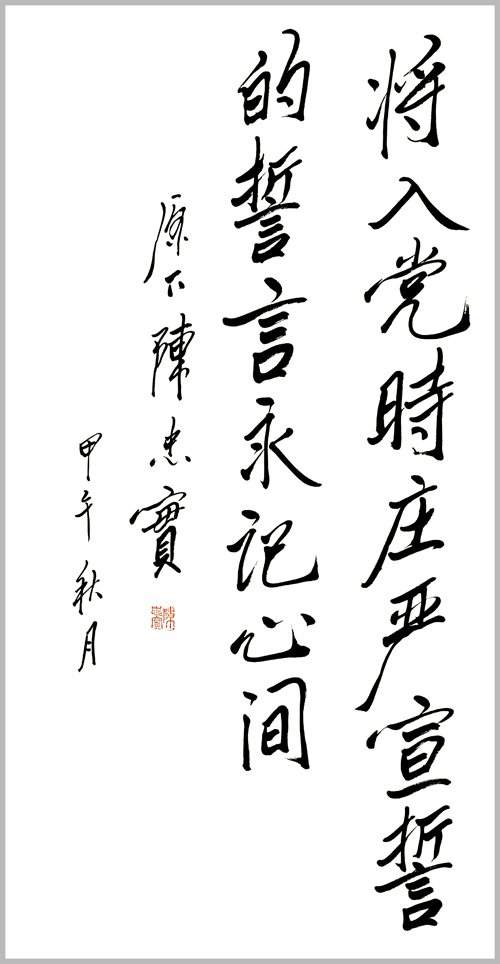 将入党時庄严宣誓
的誓言永记心间
原下陳忠實
甲午秋月